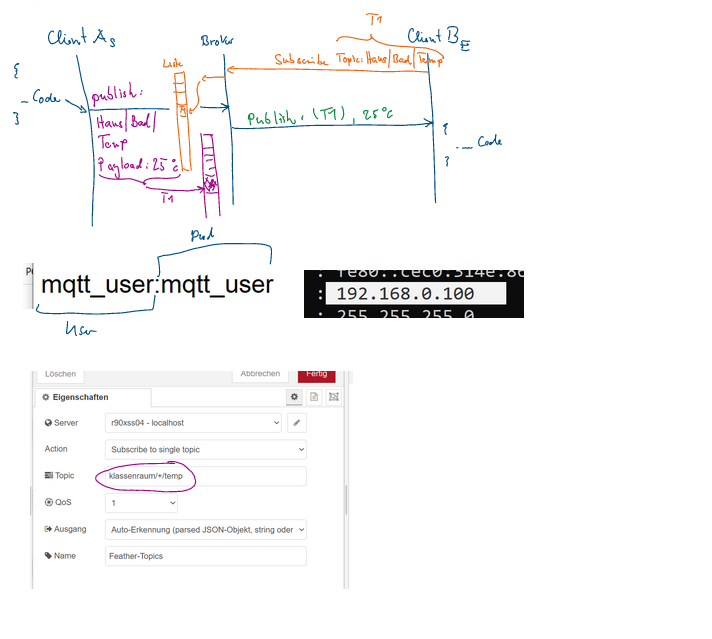 T1
Client A_S
Broker
Client B_E
Liste
Subscribe Topic: Haus/Bad/Temp
{
_ Code
}
publish:
Haus/Bad/
Temp
Payload: 25°C
T1
Publish: (T1), 25°C
{
.__ Code
}
Pwd
mqtt_user:mqtt_user
User
: fe80::cec0:314e:8c
: 192.168.0.100
: 255.255.255.0
Löschen
Abbrechen
Fertig
Eigenschaften
Server
r90xss04 - localhost
Action
Subscribe to single topic
Topic
klassenraum/+/temp
QoS
1
Ausgang
Auto-Erkennung (parsed JSON-Objekt, string oder
Name
Feather-Topics